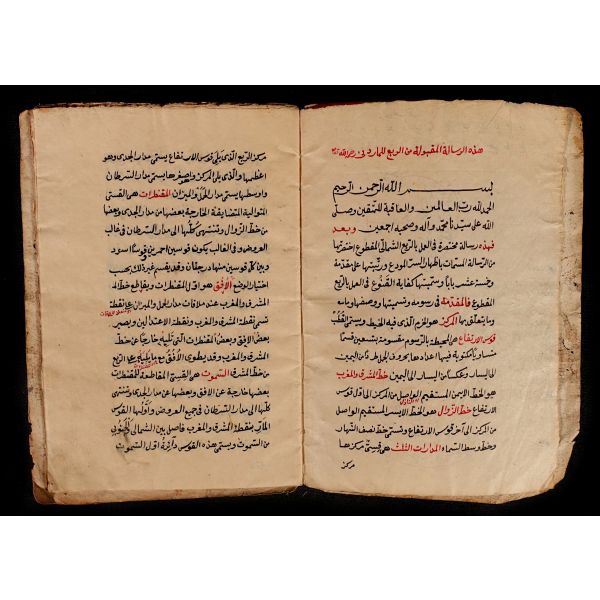 هذه الرسالة المقبولة من الربع للمارديني رحمه الله
بسم الله الرحمن الرحيم
الحمد لله رب العالمين والعاقبة للمتقين وصلى
الله على سيدنا محمد وآله وصحبه اجمعين وبعد
فهذه رسالة مختصرة في العمل بالربع الشمالي المقطوع اختصرتها
من الرسالة المسماة باظهار السر المودع ورتبتها على مقدمة
وخمسة عشر بابا وسميتها كفاية القنوع في العمل بالربع
المقطوع فالمقدمة في رسومه وتسميتها ووضعها
وما يتعلق بها المركز هو الخرم الذي فيه الخيط ويسمى القطب
قوس الارتفاع هي المحيط بالرسوم مقسومة بتسعين قسما
متساوية مكتوبة فيها اعدادها بحروف الجمل طردا من اليمين
الى اليسار وعكسا من اليسار الى اليمين خط المشرق والمغرب
هو الخط الايمن المستقيم الواصل من المركز الى اول قوس
الارتفاع خط الزوال هو الخط الايسر المستقيم الواصل
من المركز الى آخر قوس الارتفاع ويسمى خط نصف النهار
وخط وسط السماء المدارات الثلث هي قسي مركزها
مركز
مركز الربع الذي يلي قوس الارتفاع يسمى مدار الجدي وهو
اعظمها والذي يلي المركز واصغرها يسمى مدار السرطان
واوسطها يسمى مدار الحمل والميزان المقنطرات هي القسي
المتوالية المتضايقة الخارجة بعضها من مدار الجدي وبعضها
من خط الزوال وتنتهي كلها الى مدار السرطان في غالب
العروض وفي الغالب يكون قوسين احمرين قوسا اسود
وبين كل قوسين منها درجتان وقد يقسم غير ذلك بحسب
اختيار الواضع الافق هو اول المقنطرات ويقاطع خط
المشرق والمغرب عند ملاقات مدار الحمل والميزان على نقطة
تسمى نقطة المشرق والمغرب ونقطة الاعتدالين ويصير
بعض الافق وبعض المقنطرات التي تليه خارجا عن خط
المشرق والمغرب وقد يطوى الافق مع ما يليه على الربع
من خط المشرق السموت هي القسي المقاطعة للمقنطرات
بعضها خارجة عن الافق وبعضها عن مدار الجدي وتنتهي
كلها الى مدار السرطان في جميع العروض واولها القوس
المار بنقطة المشرق والمغرب فاصل بين الشمالي والجنوبي
من السموت ويسمى هذه القوس دائرة اول السموت